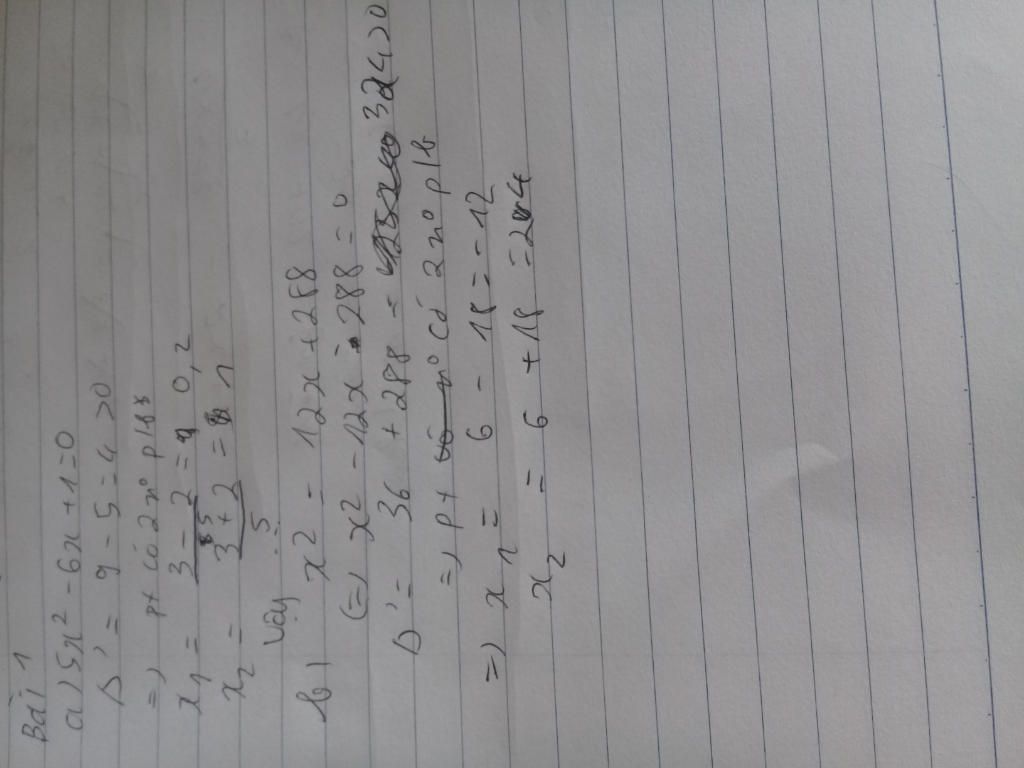 Bài 1
a) 5x² - 6x + 1 = 0
Δ' = 9 - 5 = 4 > 0
=) pt có 2 n⁰ pb
x₁ = 3 - 2 / 5 = 0,2
x₂ = 3 + 2 / 5 = 1
Vậy ...
b) x² - 12x + 288
(=) x² - 12x - 288 = 0
Δ' = 36 + 288 = 324 > 0
=) pt có 2 n⁰ pb
=) x₁ = 6 - 18 = -12
x₂ = 6 + 18 = 24